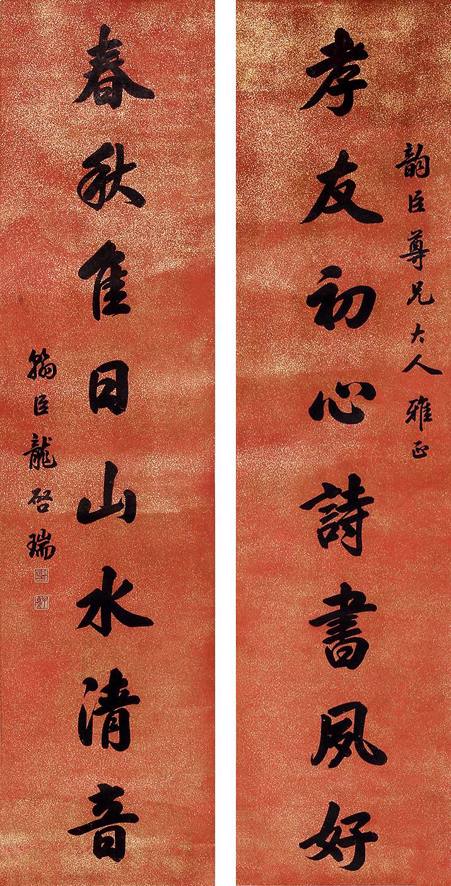 韵臣尊兄大人雅正
孝友初心詩書夙好
春秋佳日山水清音
翰臣龍启瑞